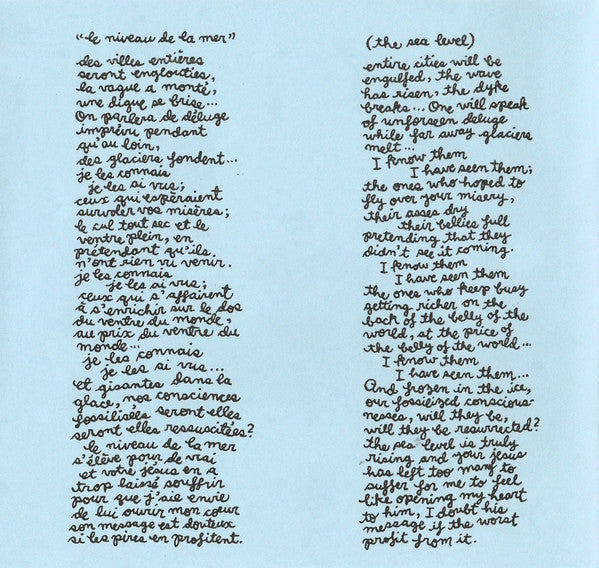 "le niveau de la mer"
des villes entières
seront englouties,
la vague a monté,
une digue se brise...
On parlera de déluge
imprévu pendant
qu'au loin,
des glaciers fondent...
je les connais
je les ai vus;
ceux qui espéraient
survoler vos misères;
le cul tout sec et le
ventre plein, en
prétendant qu'ils
n'ont rien vu venir.
je les connais
je les ai vus;
ceux qui s'affairent
à s'enrichir sur le dos
du ventre du monde,
au prix du ventre du
monde...
je les connais
je les ai vus...
et gisantes dans la
glace, nos consciences
fossilisées seront elles
seront elles ressuscitées?
le niveau de la mer
s'élève pour de vrai
et votre jésus en a
trop laissé souffrir
pour que j'aie envie
de lui ouvrir mon cœur
son message est douteux
si les pires en profitent.
(the sea level)
entire cities will be
engulfed, the wave
has risen, the dyke
breaks... One will speak
of unforseen deluge
while far away glaciers
melt...
I know them
I have seen them;
the ones who hoped to
fly over your misery,
their asses dry
their bellies full
pretending that they
didn't see it coming.
I know them
I have seen them
the ones who keep busy
getting richer on the
back of the belly of the
world, at the price of
the belly of the world...
I know them
I have seen them...
And frozen in the ice,
our fossilized conscious-
nesses, will they be,
will they be resurrected?
the sea level is truly
rising and your jesus
has left too many to
suffer for me to feel
like opening my heart
to him, I doubt his
message if the worst
profit from it.